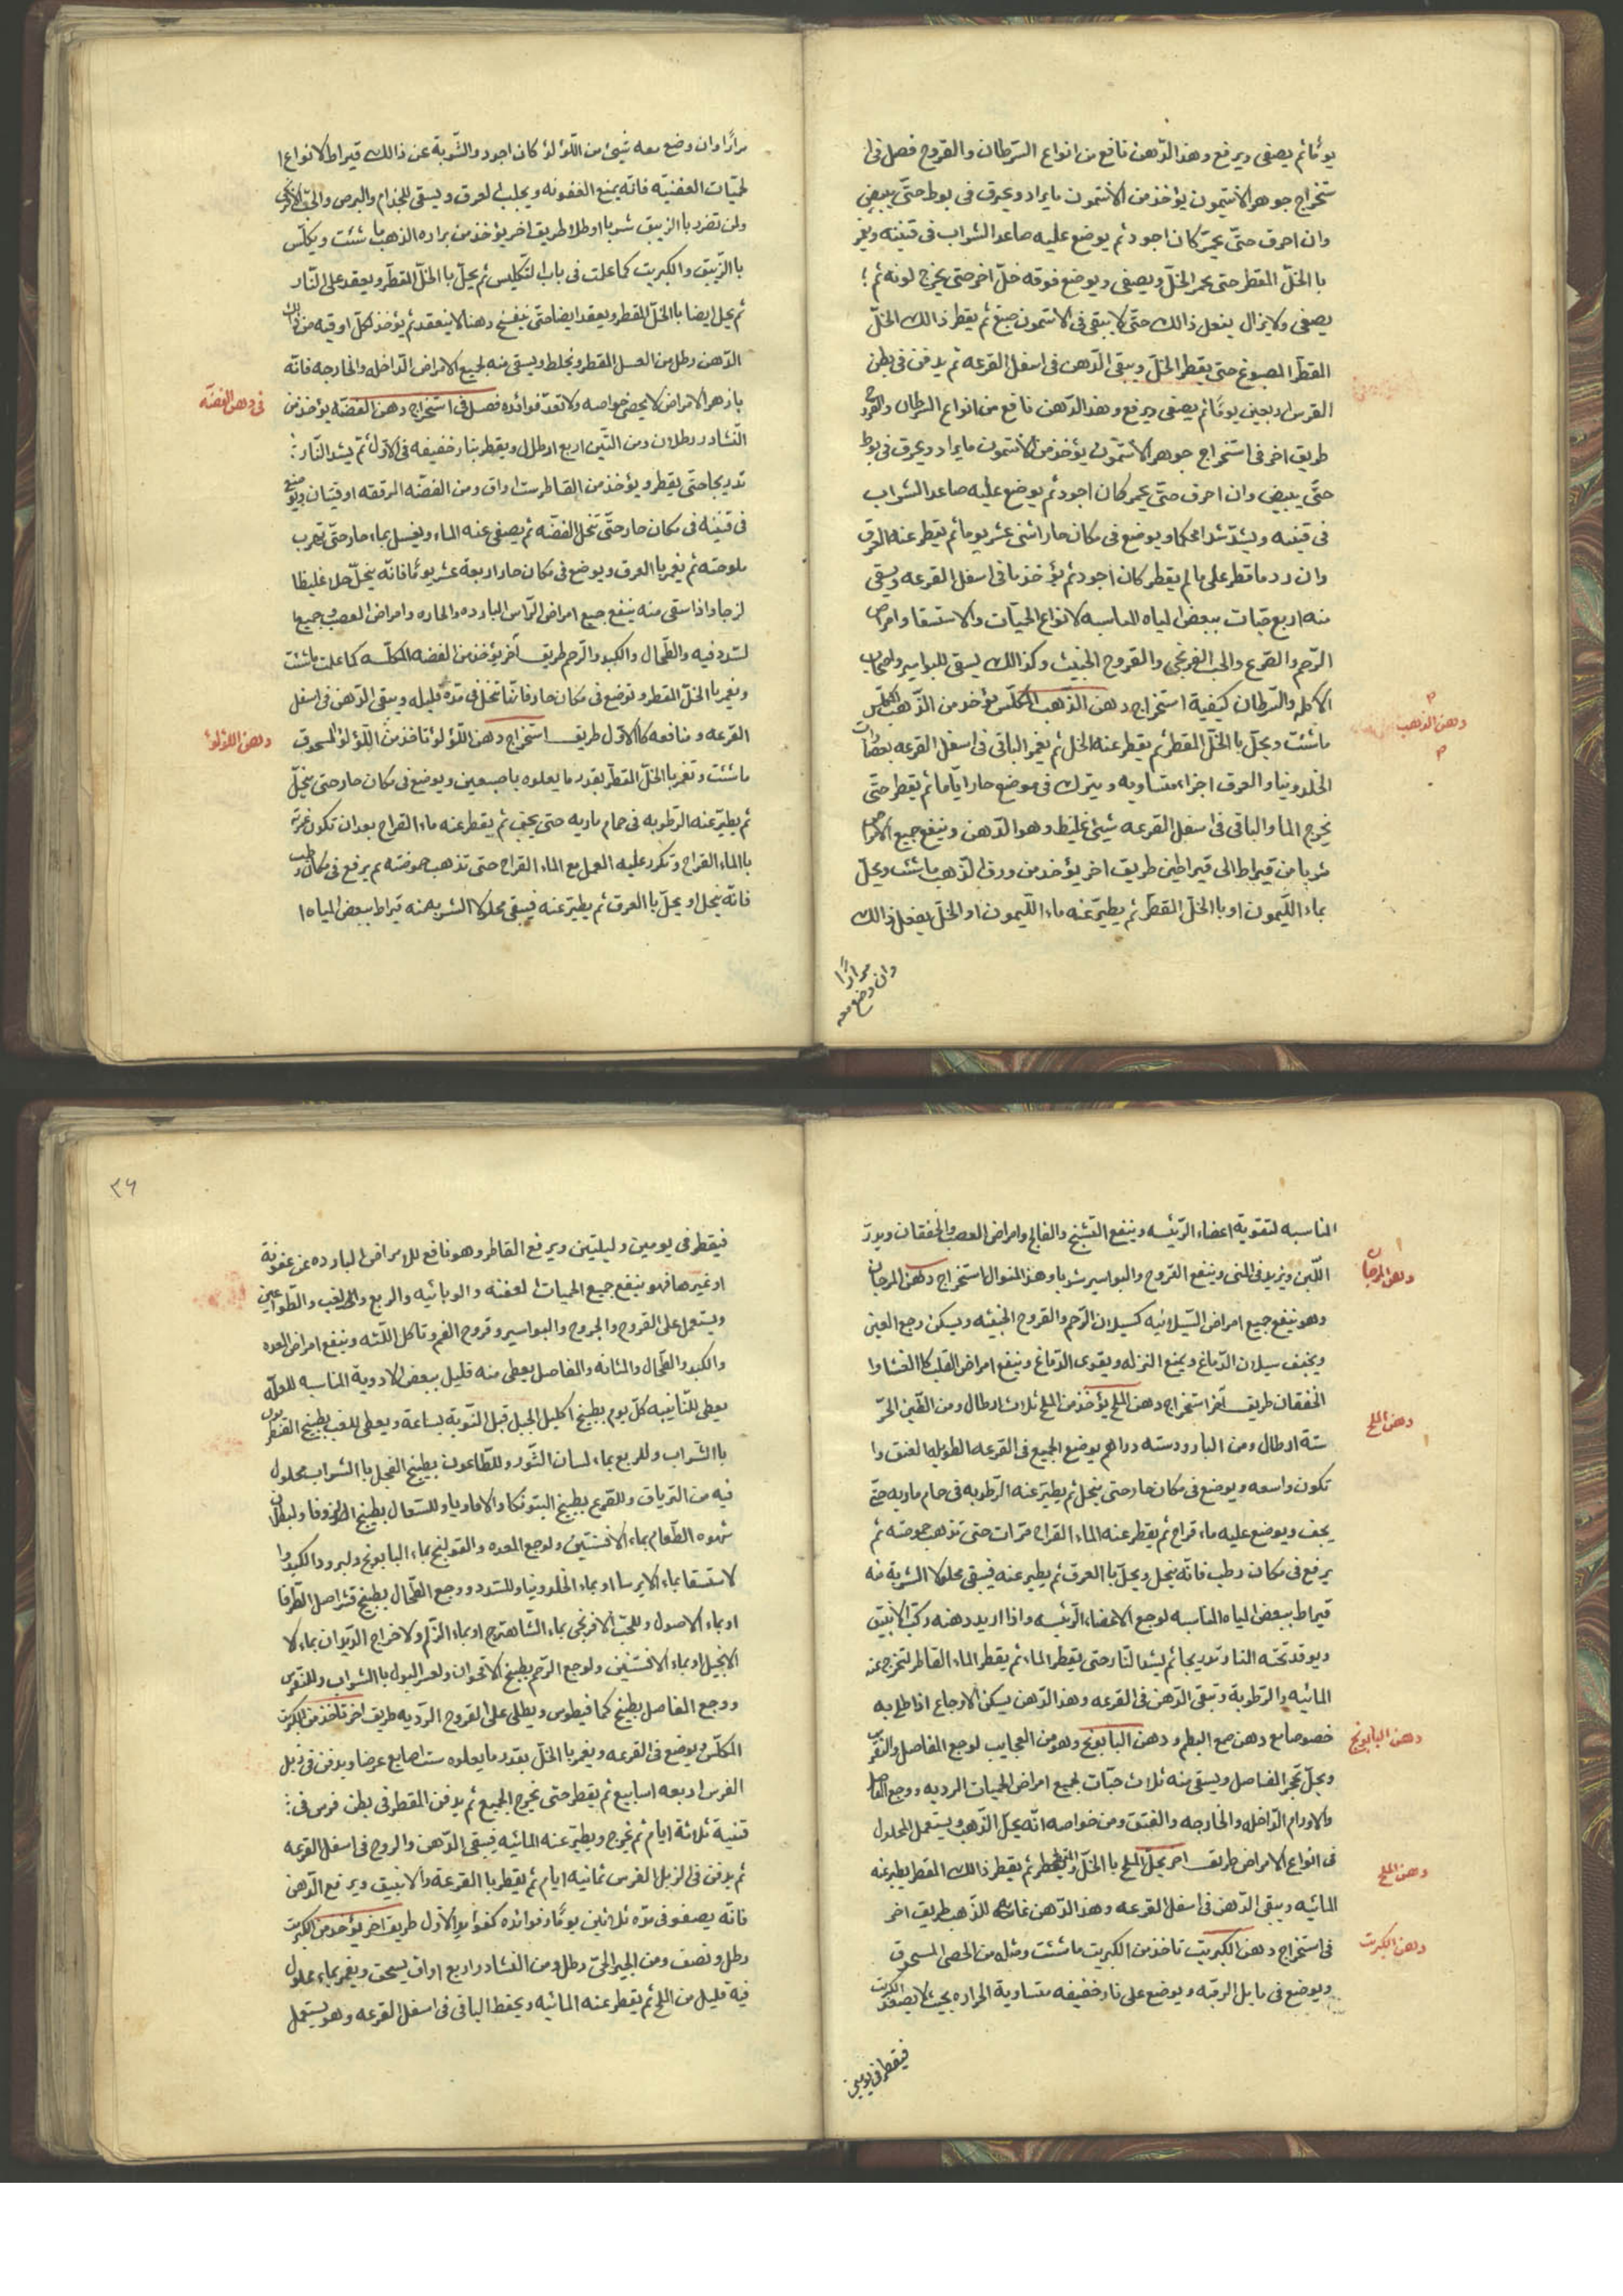 يومًا ثم يصفى ويرفع وهذا الدّهن نافع من انواع السّرطان والقروح فصل فى ا
ستخراج جوهر الانتيمون يؤخذ من الانتمون ما يراد ويحرق فى بوط حتّى يبيض
وان احرق حتّى يحمرّ كان اجود ثم يوضع عليه صاعد الشراب فى قنينه ويغمر
با الخلّ المقطر حتى يحمر الخلّ ويصفى ويوضع فوقه خلّ اخر حتى يخرج لونه ثم
يصفى ولا يزال يفعل ذالك حتّى لا يبقى فى الانتمون صبغ ثم يقطر ذالك الخلّ
القطر المصبوغ حتى يقطر الخلّ ويبقى الدّهن فى اسفل القرعه ثم يدفن فى بطن
الفرس اربعين يومًا ثم يصفى ويرفع وهذا الدّهن نافع من انواع السرطان والقروح
طريق اخر فى استخراج جوهر الانتمون يؤخذ من الانتمون ما يراد ويحرق فى بوط
حتّى يبيض وان احرق حتّى يحمر كان اجود ثم يوضع عليه صاعد الشراب
فى قنينه ويشدّ شدا محكما ويوضع فى مكان حار اثنى عشر يوما ثم يقطر عنه العرق
وان رد ما قطر على ما لم يقطر كان اجود ثم يؤخذ ما فى اسفل القرعه ويسقى
منه اربع حبّات ببعض المياه المناسبه لانواع الحميّات والاستسقا وامراض
الرّحم والصّرع والحب الفرنجى والقروح الخبيث وكذالك يسقى للبواسير واصحاب
الاكله والسّرطان كيفية استخراج دهن الذّهب المكلّس يؤخذ من الذّهب المكلّس
دهن الذهب
ما شئت ويحلّ با الخلّ المقطر ثم يقطر عنه الخل ثم يغمر الباقى فى اسفل القرعه بعصارة
الخلدونيا والعرق اجزا متساويه ويترك فى موضع حار ايّاما ثم يقطر حتّى
يخرج الما والباقى فى اسفل القرعه شيئ غليظ وهو الدّهن وينفع جميع الامراض
شربا من قيراط الى قيراطين طريق اخر يؤخذ من ورق الذّهب ما شئت ويحلّ
بماء اللّيمون او با الخلّ القطر ثم يطيرّ عنه ماء اللّيمون او الخلّ يفعل ذالك
مرارًا
وان وضع معه
مرارًا وان وضع معه شيئ من اللؤلؤ كان اجود والشّوبة عن ذالك قيراط لانواع ا
لحمّيات العفنيّه فانّه يمنع العفونه ويجلب العرق ويسقى للجذام والبرص والحبّ الافرنجى
ولمن تضرر با الزيبق شربا او طلا طريق اخر يؤخذ من براده الذهب ما شئت ويكلّس
با الزّيبق والكبريت كما علمت فى باب التّكليس ثم يحلّ با الخلّ المقطّر ويعقد على النّار
ثم يحل ايضا با الخلّ المقطر ويعقد ايضا حتى ينفسخ دهنا لا ينعقد ثم يؤخذ لكلّ اوقيه من ذالك
الدّهن رطل من العسل المقطر ويخلط ويسقى منه لجميع الامراض الدّاخله والخارجه فانّه
بازهر الامراض لا يحصى خواصه ولا تعدّ فوائده فصل فى استخراج دهن الفضّه يؤخذ من
فى دهن الفضّه
النّشادر رطلان ومن التّين اربع ارطال ويقطر بنار خفيفه فى الاوّل ثمّ يشد النّار
تدريجا حتى يقطر ويؤخذ من القاطر ست اواق ومن الفضّه المرققه اوقيتان ويوضع
فى قنينه فى مكان حار حتّى تنحل الفضّه ثم يصفى عنه الماء ويغسل بماء حار حتّى تهرب
ملوحته ثم يغمر با العرق ويوضع فى مكان حار اربعة عشر يومًا فانّه ينحلّ حلا غليظا
لزجا واذا سقى منه ينفع جميع امراض الرّاس البارده والحاره وامراض العصب وجميع ا
لسّدد فيه والطّحال والكبد والرّحم طريق آخر يؤخذ من الفضه المكلّسه كما علمت ما شئت
وتغمر با الخلّ المقطر وتوضع فى مكان حار فانّها تنحل فى مدّة قليله ويبقى الدّهن فى اسفل
القرعه ومنافعه كا الاوّل طريق استخراج دهن اللّؤلؤ تاخذ من اللّؤلؤ المسحوق
دهن اللؤلؤ
ما شئت وتغمر با الخلّ المقطّر بقدر ما يعلوه باصبعين ويوضع فى مكان حار حتى ينحلّ
ثم يطيرّ عنه الرّطوبه فى حمام ماريه حتى يجف ثم يقطر عنه ماء القراح بعد ان تكون غمرته
با الماء القراح وتكرد عليه العمل مع الماء القراح حتى تذهب حموضته ثم يرفع فى مكان رطيب
فانّه ينحل او يحلّ با العرق ثم يطيرّ عنه فيبقى محلولا الشربه منه قيراط ببعض المياه ا
المناسبه لتقوية اعضاء الرّئيسه وينفع التّشنج والفالج وامراض العصب والخفقان ويدرّ
اللّبن ويزيد فى المنى وينفع القروح والبواسير شربا وهذا المنوال استخراج دهن المرجان
دهن المرجان
وهو ينفع جميع امراض السّيلانيه كسيلان الرّحم والقروح الخبيثه ويسكن وجع العين
ويجفف سيلان الدّماغ ويمنع النزله ويقوى الدّماغ وينفع امراض القلب كا الغشا وا
الخفقان طريق آخر استخراج دهن الملح يؤخذ من الملح ثلاث ارطال ومن الطّين الحرّ
دهن الملح
ستة ارطال ومن البارود سته دراهم يوضع الجميع فى القرعه الطويله العنق وا
تكون واسعه ويوضع فى مكان حار حتى ينحل ثم يطيرّ عنه الرّطوبه فى حمام ماريه حتّى
يجف ويوضع عليه ماء قراح ثم يقطر عنه الماء القراح مرّات حتى تذهب حموضته ثم
يرفع فى مكان رطب فانّه ينحل ويحلّ با العرق ثم يطير عنه فيبقى محلولا الشربة منه
قيراط ببعض المياه المناسبه لوجع الاعضاء الرّئيسه واذا اريد دهنه ركّب الانبيق
ويوقد تحته النار تدريجا ثم يشدّ النّار حتى يقطر الماء ثم يقطر الماء القاطر لتخرج عنه
المائيه والرّطوبة وتبقى الدّهن فى القرعه وهذا الدّهن يسكن الاوجاع اذا طلى به
خصوصا مع دهن صمغ البطم و دهن البابونج وهو من العجايب لوجع المفاصل والنقرس
دهن البابونج
ويحلّ تحجّر المفاصل ويسقى منه ثلاث حبّات لجميع امراض الحميات الرديه ووجع المفاصل
والاورام الدّاخله والخارجه والفتق ومن خواصه انّه يحلّ الذّهب ويستعمل المحلول
فى انواع الامراض طريق اخر يحلّ الملح با الخلّ المقطر ثم يقطر ذالك المقطر يطير عنه
دهن الملح
المائيه ويبقى الدّهن فى اسفل القرعه وهذا الدّهن للذّهب طريق اخر
فى استخراج دهن الكبريت تاخذ من الكبريت ما شئت ومثله من الحصى المسحوق
دهن الكبريت
ويوضع فى مايل الرقبه ويوضع على نار خفيفه متساوية الحراره بحيث لا يصعد الكبريت
فيقطر فى يومين
٣٦
فيقطر فى يومين وليلتين ويرفع القاطر وهو نافع للامراض البارده عن عفونة
او غيرها فهو ينفع جميع الحميات العفنه والوبائيه والربع والغب والطّواعين
ويستعمل على القروح والجروح والبواسير وقروح الفم وتاكل اللّثه وينفع امراض المعده
والكبد والطّحال والمثانه والمفاصل يعطى منه قليل ببعض الادوية المناسبه للعلّه
يعطى للنّائبيه كلّ يوم بطبيخ اكليل الجبل قبل النّوبة بساعة ويعطى للغب بطبيخ القنطريون
با الشّراب وللربع بماء لسان الثّور وللطّاعون بطبيخ الفجل با الشراب محلول
فيه من الترياق وللصّرع بطبيخ البتونكا والاماريا وللسّعال بطبيخ الزوفا ولبطلان
شهوه الطّعام بماء الافسنتين ولوجع المعده والقولنج بماء البابونج ولبرود الكبد وا
لاستسقا بماء الايرسا او بماء الخلدونيا وللسّدد ووجع الطّحال بطبيخ قشر اصل الطّرفا
او بماء الاصول وللحبّ الافرنجى بماء الشّاهترج او بماء الزلم ولاخراج الدّيدان بماء لا
الانجيل او بماء الافسنتين ولوجع الرّحم بطبيخ الاقحوان ولعسر البول با الشراب وللنّقرس
ووجع المفاصل بطبيخ كمافيطوس ويطلى على القروح الرّديه طريق اخر تاخذ من الكبريت
المكلّس ويوضع فى القرعه ويغمر با الخلّ بقدر ما يعلوه ست اصابع عرضا ويدفن فى زبل
الفرس اربعه اسابيع ثم يقطر حتى يخرج الجميع ثم يدفن المقطر فى بطن فرس فى
قنينة ثلاثة ايام ثم يخرج ويطيرّ عنه المائيه فيبقى الدّهن والروح فى اسفل القرعه
ثم يدفن فى الزبل الفرس ثمانيه ايام ثم يقطر با القرعه والانبيق ويرفع الدّهن
فانّه يصفو فى مدّه ثلاثين يومًا وفوائده كفوايد الاوّل طريق اخر يؤخذ من الكبريت
رطل ونصف ومن الجير الحىّ رطل ومن النشادر اربع اواق يسحق ويغمر بماء محلول
فيه قليل من الملح ثم يقطر عنه المائيه ويحفظ الباقى فى اسفل القرعه وهو يستعمل